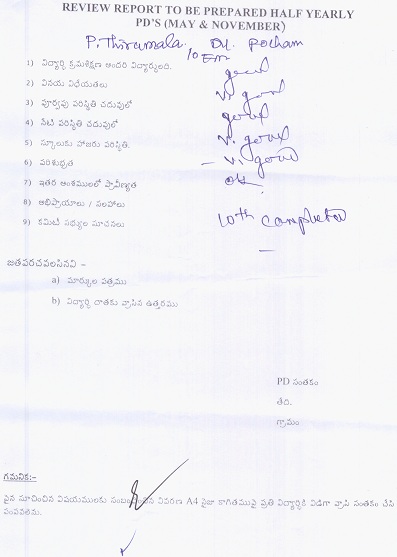 REVIEW REPORT TO BE PREPARED HALF YEARLY
PD'S (MAY & NOVEMBER)
P. Thirumala. D/. Pocham
10 EM
1) విద్యార్థి క్రమశిక్షణ అందరి విద్యార్థులది. good
2) వినయ విధేయతలు V. good
3) పూర్వపు పరిస్థితి చదువులో good
4) నేటి పరిస్థితి చదువులో V. good
5) స్కూలుకు హాజరు పరిస్థితి. – V. good
6) పరిశుభ్రత ok
7) ఇతర అంశములలో ప్రావీణ్యత
8) అభిప్రాయాలు / సలహాలు 10th completed
9) కమిటి సభ్యుల సూచనలు –
జతపరచవలసినవి –
a) మార్కుల పత్రము
b) విద్యార్థి దాతకు వ్రాసిన ఉత్తరము
PD సంతకం
తేది.
గ్రామం
గమనిక:–
పైన సూచించిన విషయములకు సంబంధించిన వివరణ A4 సైజు కాగితముపై ప్రతి విద్యార్థికి విడిగా వ్రాసి సంతకం చేసి
పంపవలెను.